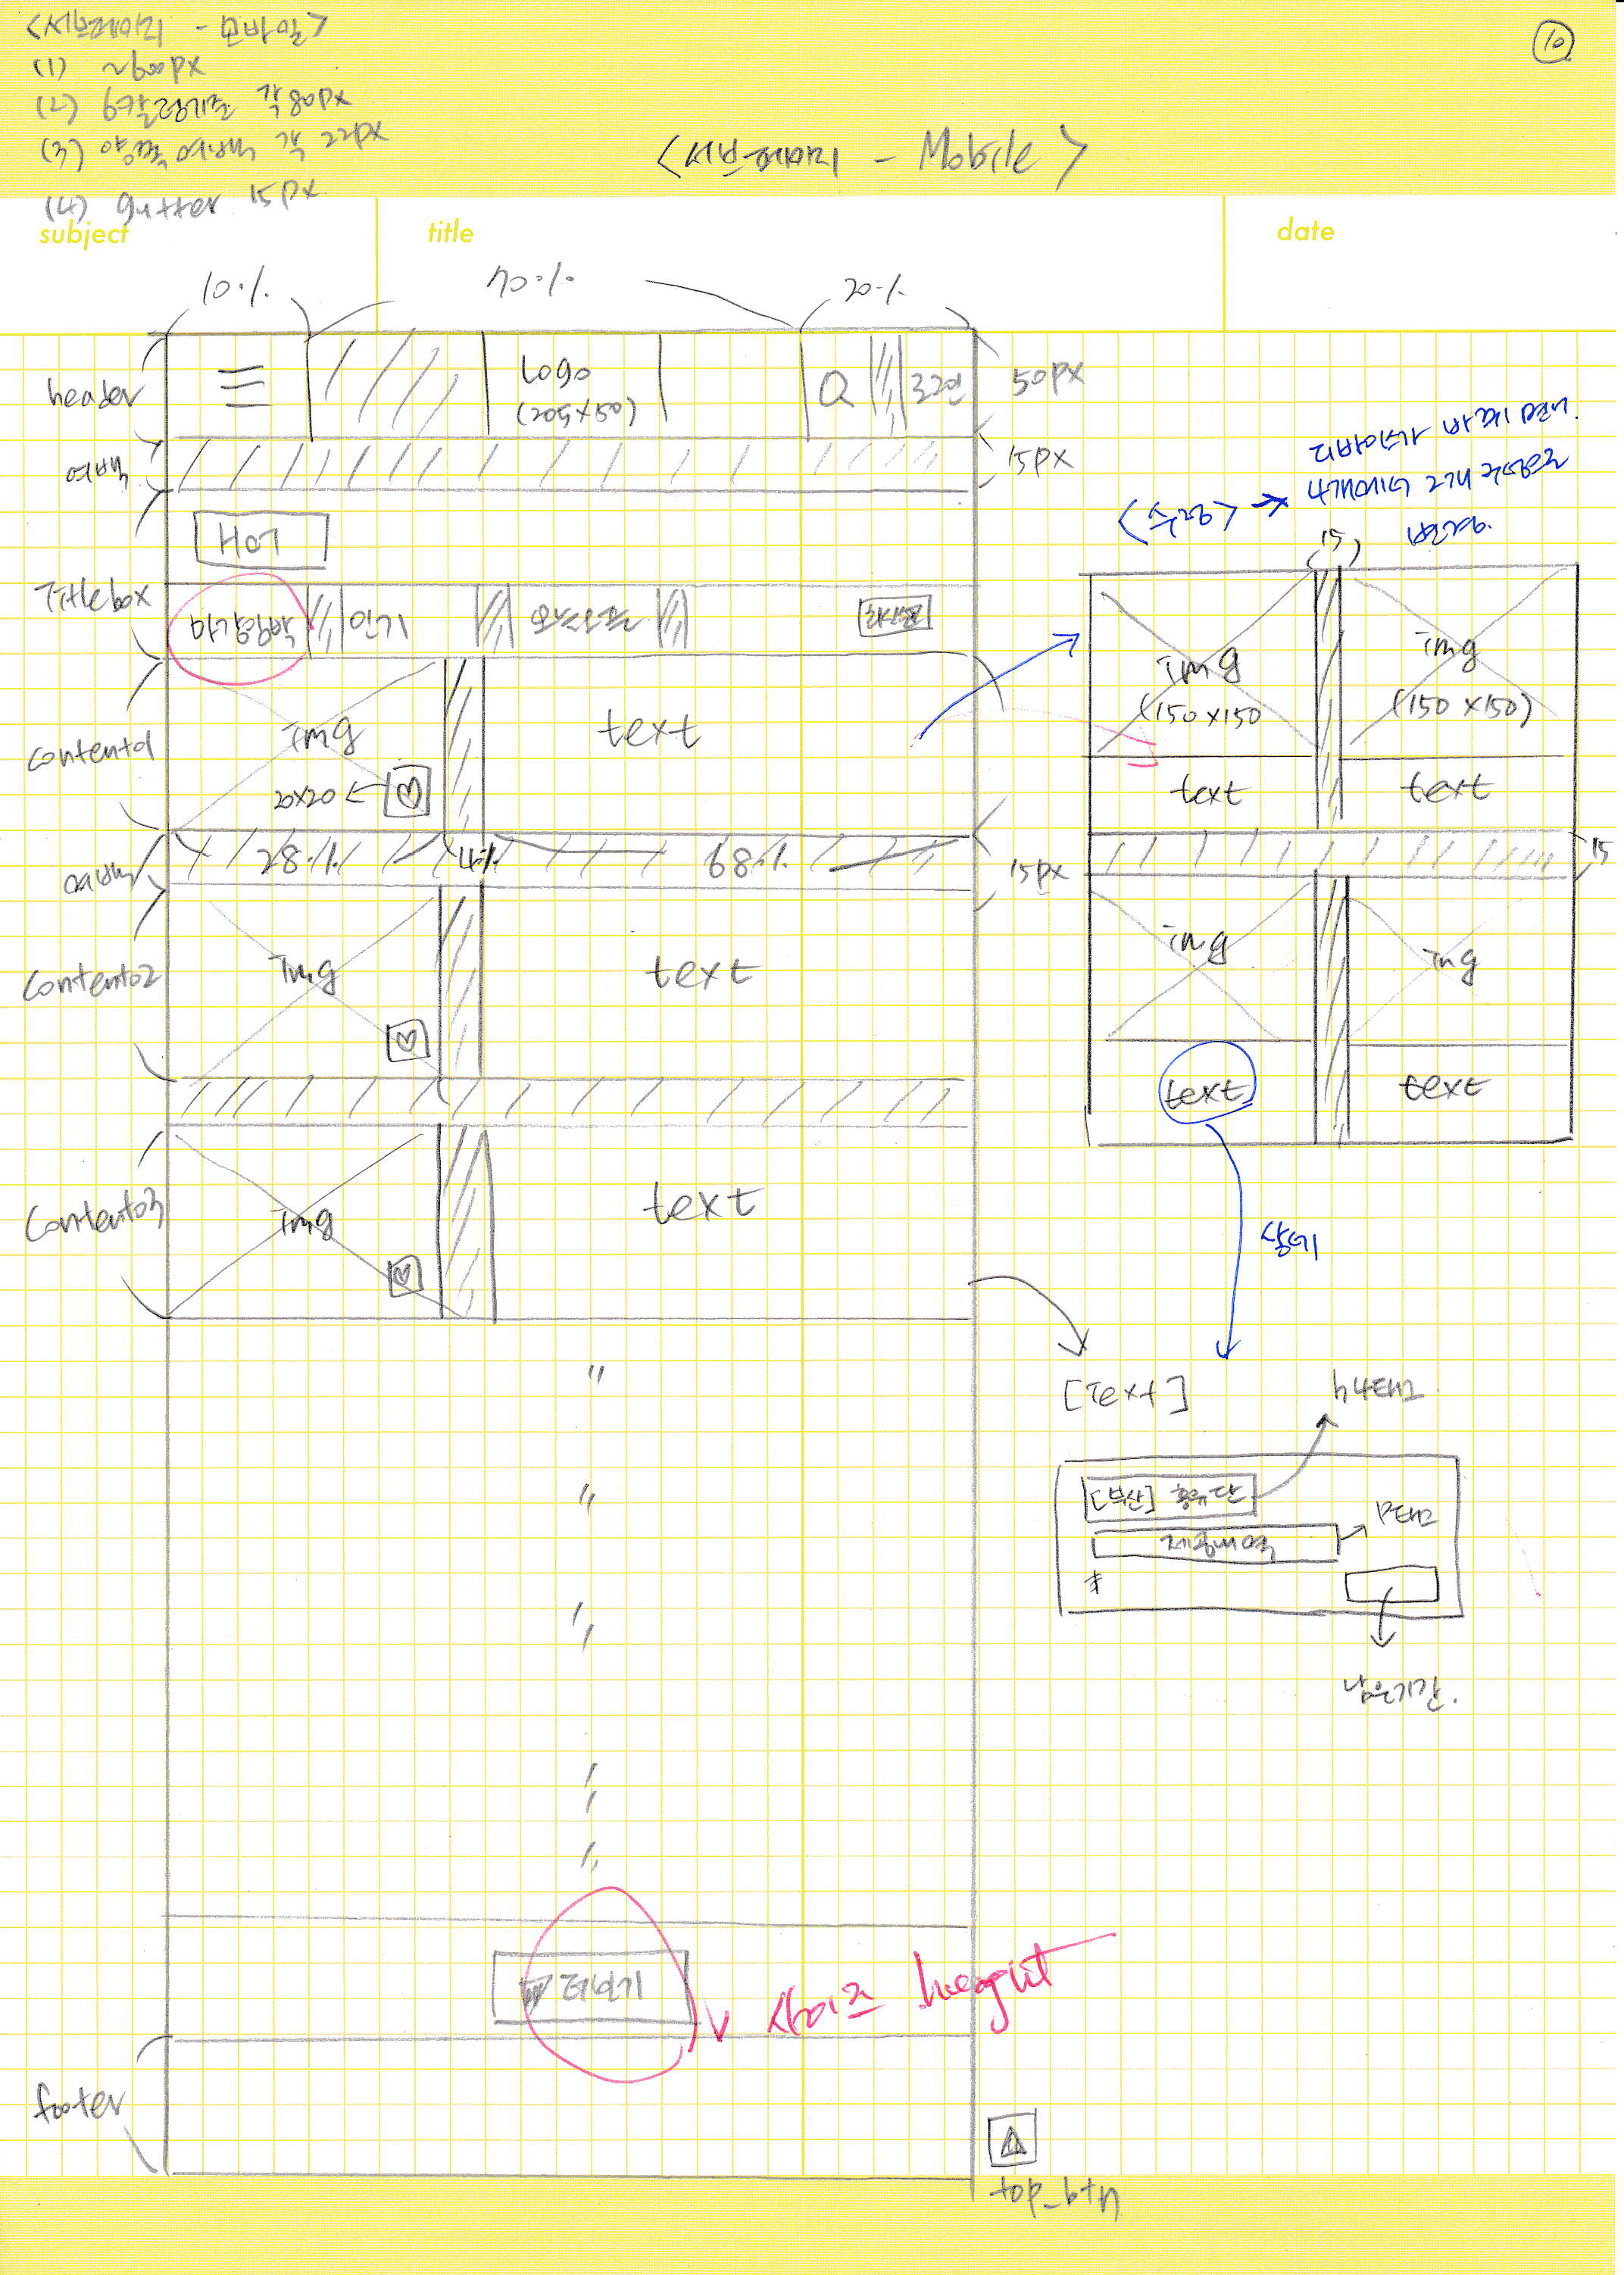 <서브페이지 - 모바일>
(1) ~600px
(2) 6칼럼기준 각 80px
(3) 양쪽여백 각 22px
(4) gutter 15px
10
<서브페이지 - Mobile>
subject
title
date
10%
70%
20%
header
Logo
(205x50)
Q
로그인
50px
여백
15px
HOT
Title box
인기
최신순
content01
img
20x20
text
여백
28%
4%
68%
15px
content02
img
text
content03
img
text
"
"
"
"
"
더보기
사이즈 height
footer
top_btn
<수정> → 디바이스가 바뀌게 되면
4개에서 2개 구성으로
변경.
15
img
(150x150
img
(150x150)
text
text
15
img
img
text
text
상세
[Text]
h4태그
[부산] 홍유단
제공내역
P태그
*
남은기간.